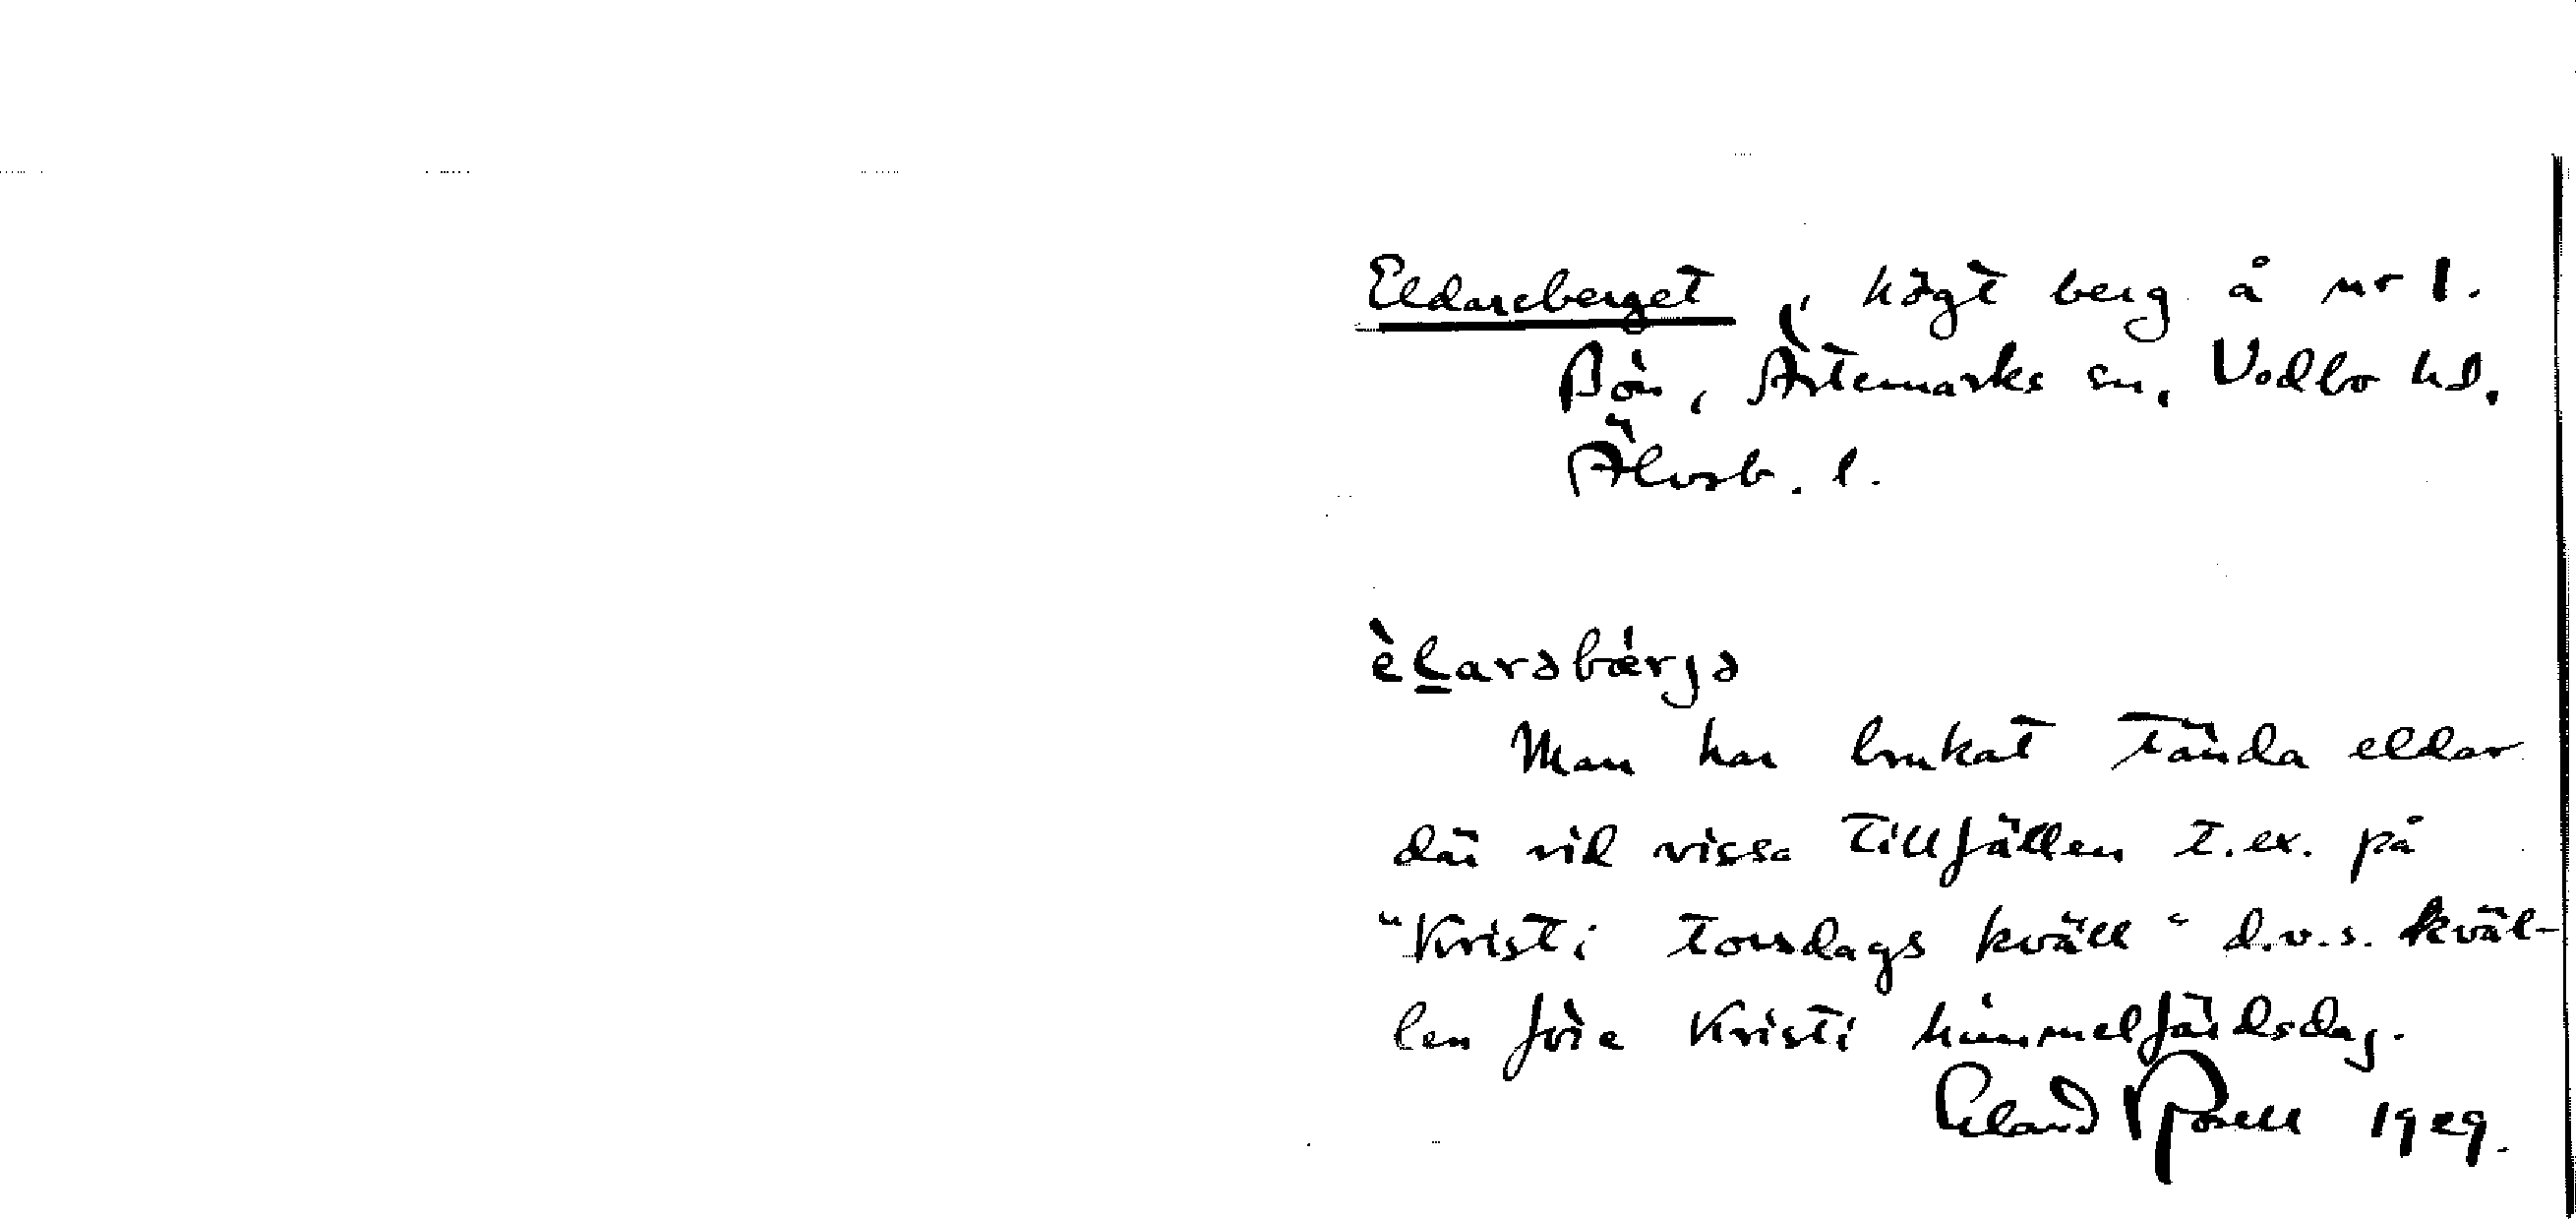 Eldareberget, högt berg å nr 1.
Bön, Ärtemarks sn, Vedbo hd.
Älvsb. l.
èḻarəbǽrjə
Man har brukat tända eldar
där vid vissa tillfällen t.ex. på
"Kristi torsdags kväll" d.v.s. kväl-
len före Kristi himmelfärdsdag.
Erland Rosell 1929.